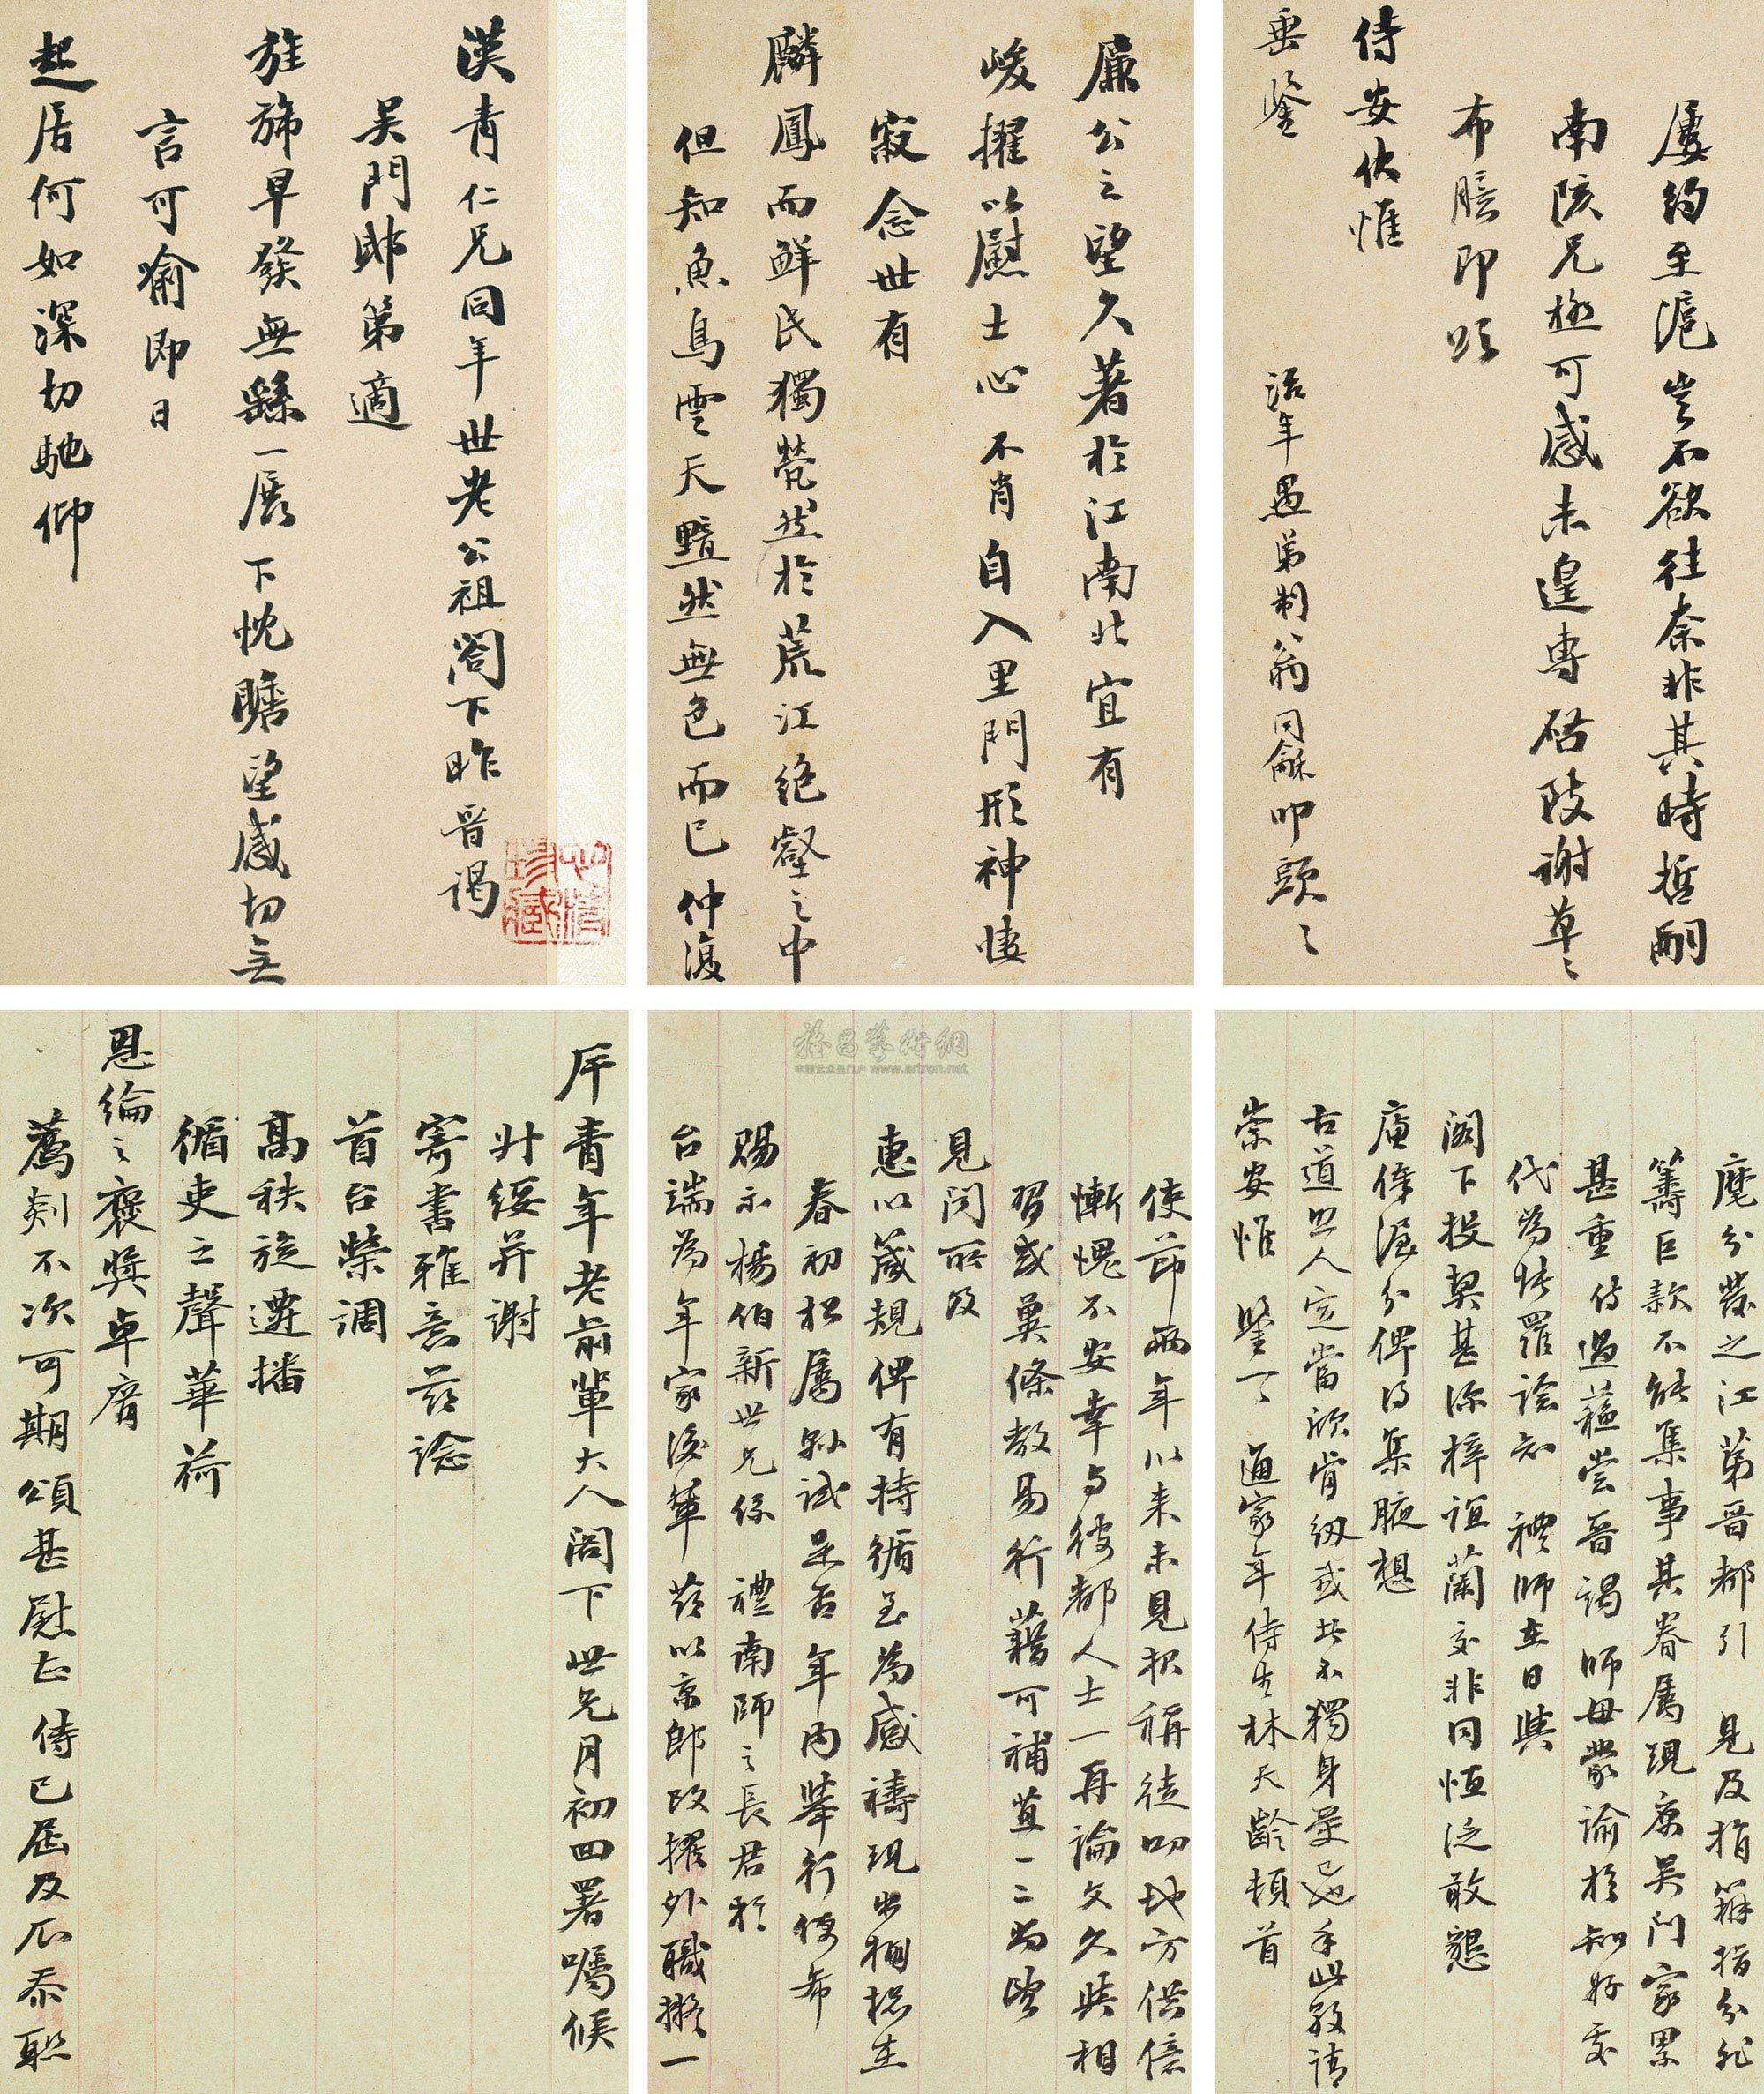 漢青仁兄同年世老公祖閣下昨晉謁
吳門邸第適
旌旆早發無緣一展下忱瞻望感切無
言可喻即日
起居何如深切馳仰
廉公之望久著於江南北宜有
峻擢以慰士心不肖自入里門形神悽
寂念世有
麟鳳而鮮民獨煢然於荒江絕壑之中
但知魚鳥雲天黯然無色而已仲復
屢約至滬豈不欲往奈非其時哲嗣
南陔兄極可感未遑專啓陂謝草〻
布臆即頌
侍安伏惟
垂鑒 治年愚弟制翁同龢叩頭〻
屏青年老前輩大人閣下世兄月初四署囑候
升綏并謝
寄書雅意茲諗
首台榮調
高秩旋遷播
循吏之聲華荷
恩綸之褒獎卓膺
薦剡不次可期頌甚慰甚侍已屆及瓜忝聯
使節兩年以來未見報稱徒叨地方供億
慚愧不安幸与彼都人士一再論文久與相
習或冀條教易行藉可補苴一二為
見聞所及
惠以箴規俾有持循至為感禱現出棚在
春初松屬縣試是否年內舉行便希
賜示楊伯新世兄係禮南師之長君於
台端為年家後輩茲以京郎改擢外職擬一
麾分發之江第晉都引見及指指分非
籌巨款不能集事其眷屬現寓吳門家累
甚重侍過蘇嘗晉謁師母蒙諭於知好處
代為張羅諗知禮師在日與
閣下投契甚深梓誼蘭交非同恒泛敢懇
廉俸渥分俾得集腋想
古道照人定當欣肯紉此不獨身受已也手此敬請
崇安惟鑒不一 通家年侍生林天齡頓首
雅昌藝術網
www.artron.net